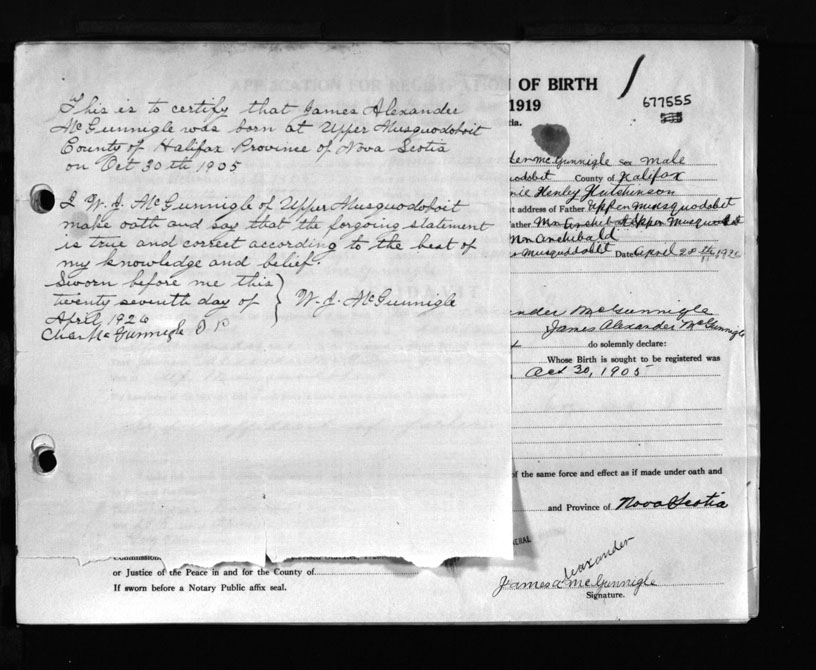 This is to certify that James Alexander
McGunnigle was born at Upper Musquodoboit
County of Halifax Province of Nova Scotia
on Oct 30th 1905
I W. J. McGunnigle of Upper Musquodoboit
make oath and say that the forgoing statement
is true and correct according to the best of
my knowledge and belief.
Sworn before me this
twenty seventh day of
April, 1926
W. J. McGunnigle
McGunnigle J P
APPLICATION FOR REGISTRATION OF BIRTH
1919
677555
McGunnigle Sex Male
County of Halifax
Henley Hutchinson
address of Father Upper Musquodobit
Mrs Archibald Upper Musquodobit
Mrs Archibald
Musquodobit Date April 28th 1926
McGunnigle
James Alexander McGunnigle
do solemnly declare:
Whose Birth is sought to be registered was
Oct 30, 1905
of the same force and effect as if made under oath and
and Province of Nova Scotia
or Justice of the Peace in and for the County of
If sworn before a Notary Public affix seal.
James Alexander McGunnigle
Signature.